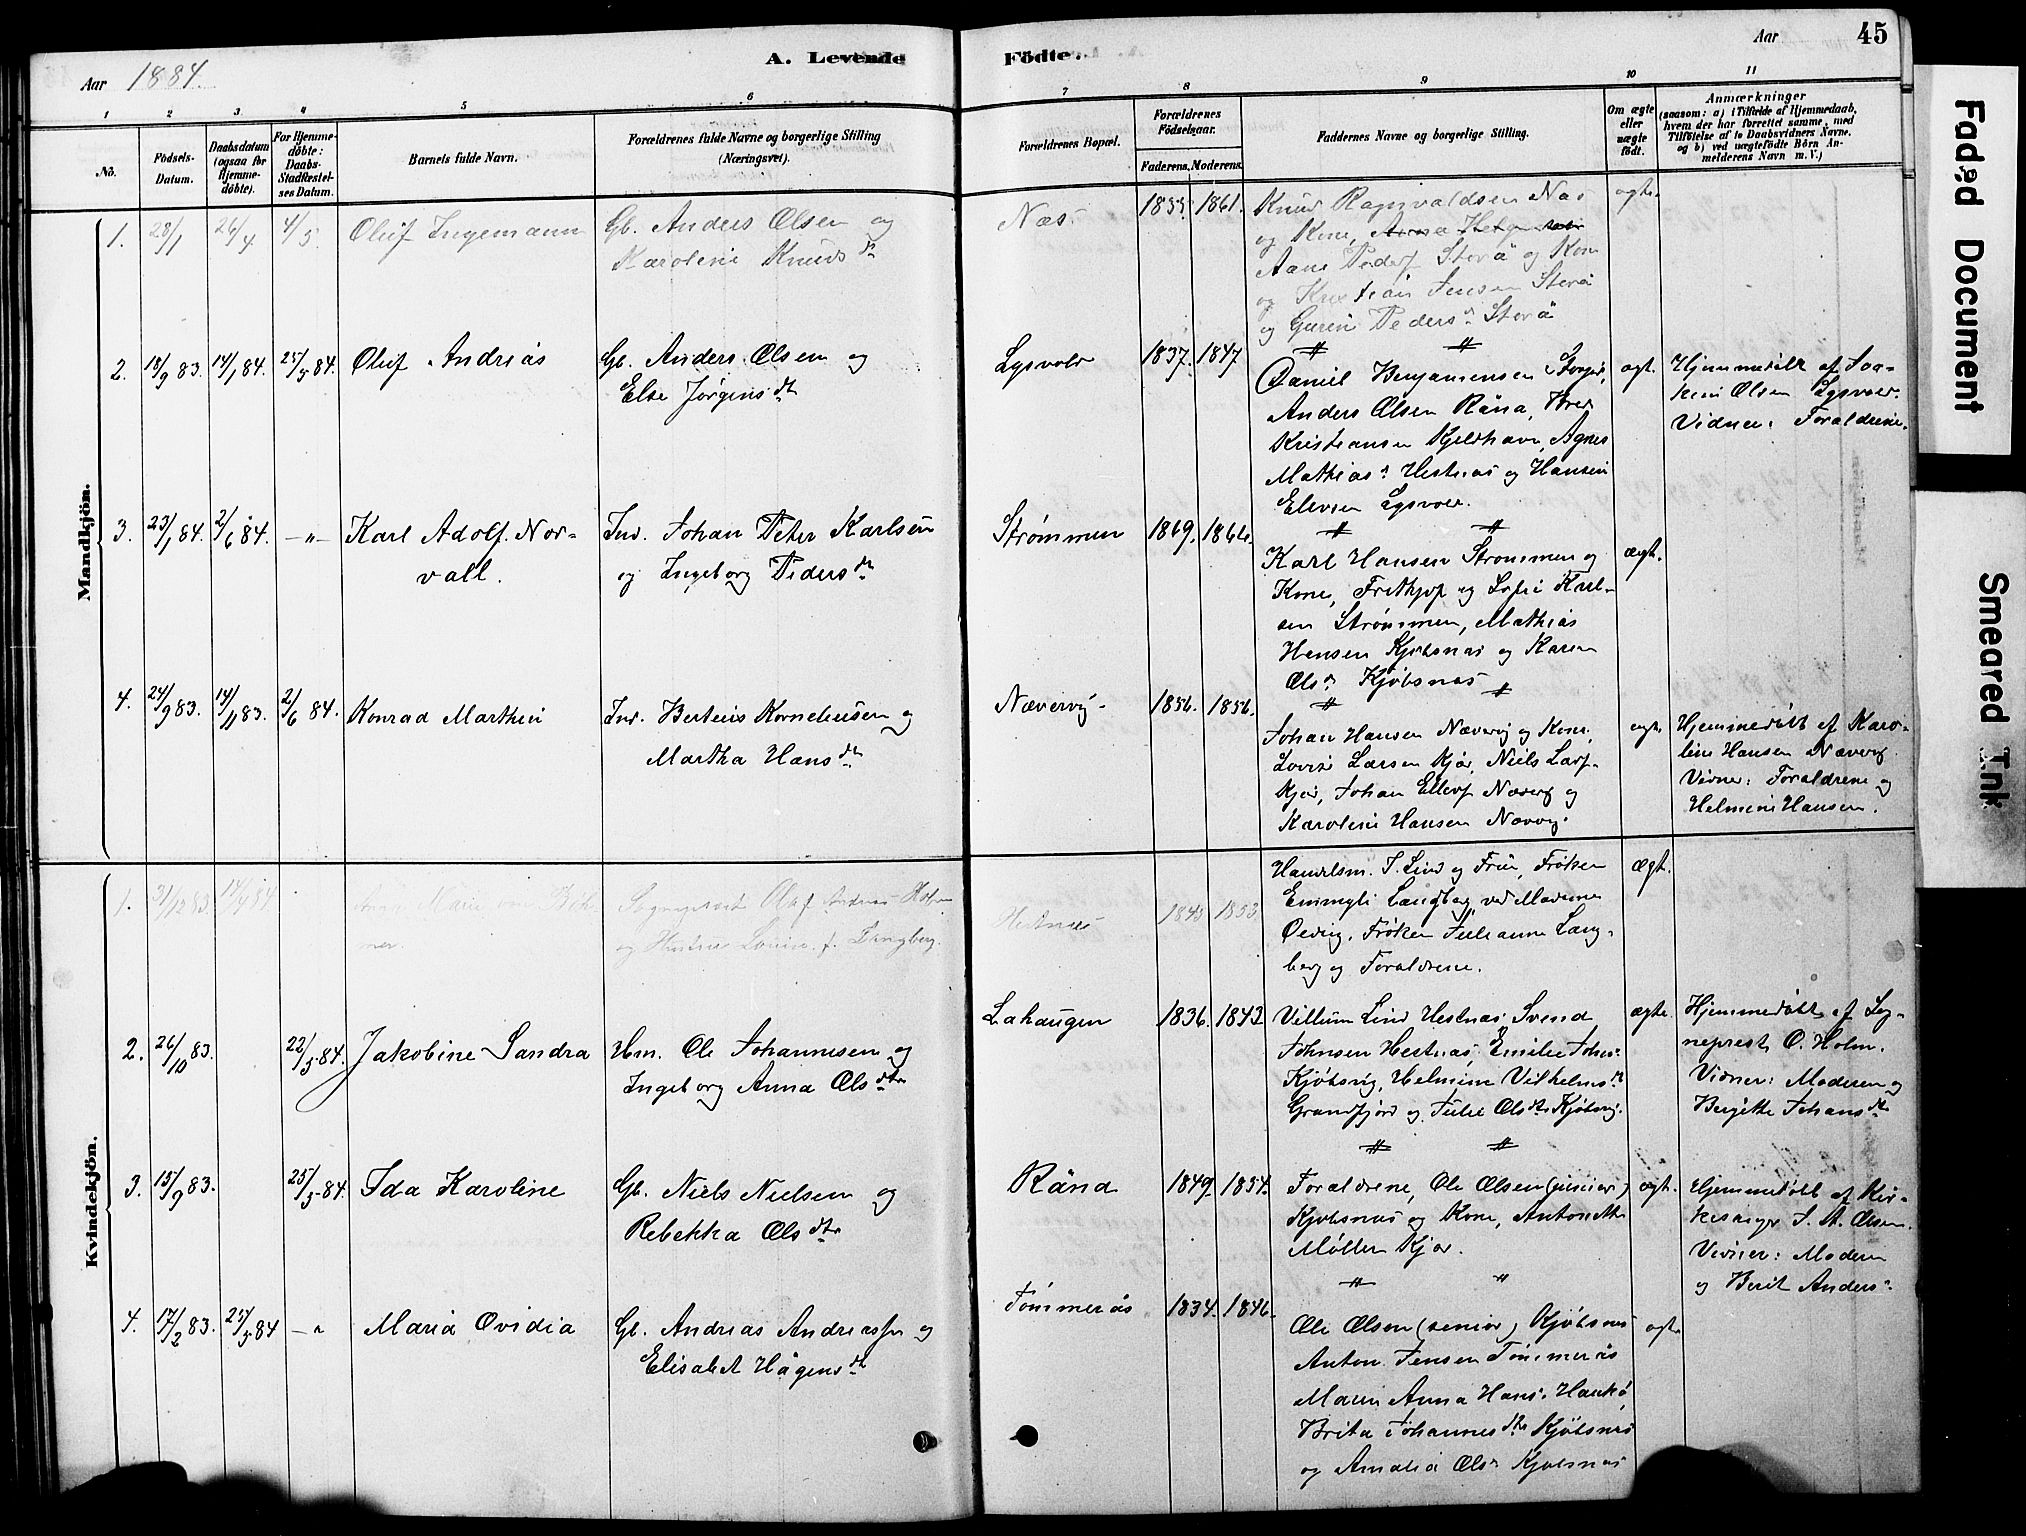 Aar 1884.
A. Levende
Födte.
Aar
45
1 2 3 4 5 6 7 8 9 10 11
No.
Födsels-Datum.
Daabsdatum (ogsaa for Hjemme-döbte).
For Hjemme-döbte: Daabs-Stadfæstel-ses Datum.
Barnets fulde Navn.
Forældrenes fulde Navne og borgerlige Stilling (Næringsvei).
Forældrenes Bopæl.
Forældrenes Födselsaar.
Faderens. Moderens.
Faddernes Navne og borgerlige Stilling.
Om ægte eller uægte födt.
Anmærkninger
(saasom: a) i Tilfælde af Hjemmedaab, hvem der har forrettet samme, med Tilföielse af to Daabsvidners Navne. og b) ved uægtefödte Börn An-melderens Navn m.V.)
Mandkjön.
1. 28/1 26/4 4/5. Oluf Ingemann
Gb. Anders Olsen og
Karoline Knudsdr
Næs 1861.
Knud Ragnvaldsen Næs
og Kone,
Aane Peders Storö og Kone
og Kristian Jensen Storö
og Gurine Pedersdr Storö
ægte.
2. 18/9 83. 14/1 84. 25/5 84. Oluf Andreas
Gb. Anders Olsen og
Else Jørgensdt
Lysvold 1837. 1847
Daniel Benjaminsen
Anders Olsen Råna,
Kristiansen Kjeldhavn, Agnes
Mathias Hestnæs og Hansine
Elevsen Lysvoll.
ægt.
Hjemmedöbt af Joa-
kim Olsen Lysvoll.
Vidner: Forældrene.
3. 23/1 84. 2/6 84. -"- Karl Adolf Nor-
vall.
Ind. Johan Peter Karlsen
og Ingeborg Pedersdt
Strømmen 1869. 1864.
Karl Hansen Strømmen og
Kone, Frithjof og Sofie Karl-
sen Strömmen, Mathias
Hansen Kjöbsnæs og Karen
Olsdr Kjöbsnæs
ægt.
4. 24/9 83. 14/11 83. 2/6 84. Konrad Marthin
Ind. Berteus Korneliusen og
Martha Hansdt
Nævervig 1856. 1856.
Johan Hansen Næverv. og Kone,
Lovise Larsen Kjær, Niels Lars.
Kjær, Johan Ellefs. Næverv. og
Karoline Hansen Næverv.
ægt.
Hjemmedöbt af Karo-
line Hansen Næverv.
Vidner: Forældrene og
Helmine Hansen.
Kvindekjön.
1. 31/12 83. Anna Marie
Sogneprest Olaf Andreas Holm
og Hustru Louise f. Langberg.
Hestnæs 1843 1853
Handelsm. J. Lind og Frue, Frøken
Emmyli Langberg, ved Madame
Øving, Frøken Julianne Lang-
berg og Forældrene.
Ægt.
2. 26/10 83. 22/5 84. Jakobine Sandra
Hm. Ole Johannesen og
Ingeborg Anna Olsdtr
Lahaugen 1836. 1843.
Villum Lind Hestnæs, Svend
Johnsen Hestnæs, Emilie Johns.
Kjöbsvig, Helmine Vilhelmsdt
Grandfjord og Julie Olsdtr Kjöbsvig.
ægte.
Hjemmedöbt af Sog-
neprest O. Holm.
Vidner: Moderen og
Bergitte Johansdt
3. 15/9 83. 25/5 84. Ida Karoline
Gb. Niels Nielsen og
Rebekka Olsdtr
Rånd 1849. 1854.
Forældrene, Ole Olsen (junior)
Kjöbsnæs og Kone, Antonette
Möller Kjær.
ægt.
Hjemmedöbt af Kir-
kesanger J. A. Olsen.
Vidner: Moderen
og Berit Anders
4. 17/2 83. 25/5 84 -" Maria Ovidia
Gb. Andreas Andreassen og
Elisabet Hågensdt
Tömmerås 1834. 1846.
Ole Olsen (senior) Kjöbsnæs
Anton Jensen Tömmerås
Maren Anna Hans.
Brita Johannesdtr Kjöbsnæs
og Amalia Olsdr Kjöbsnæs
ægte
Faded Document
Smeared Ink